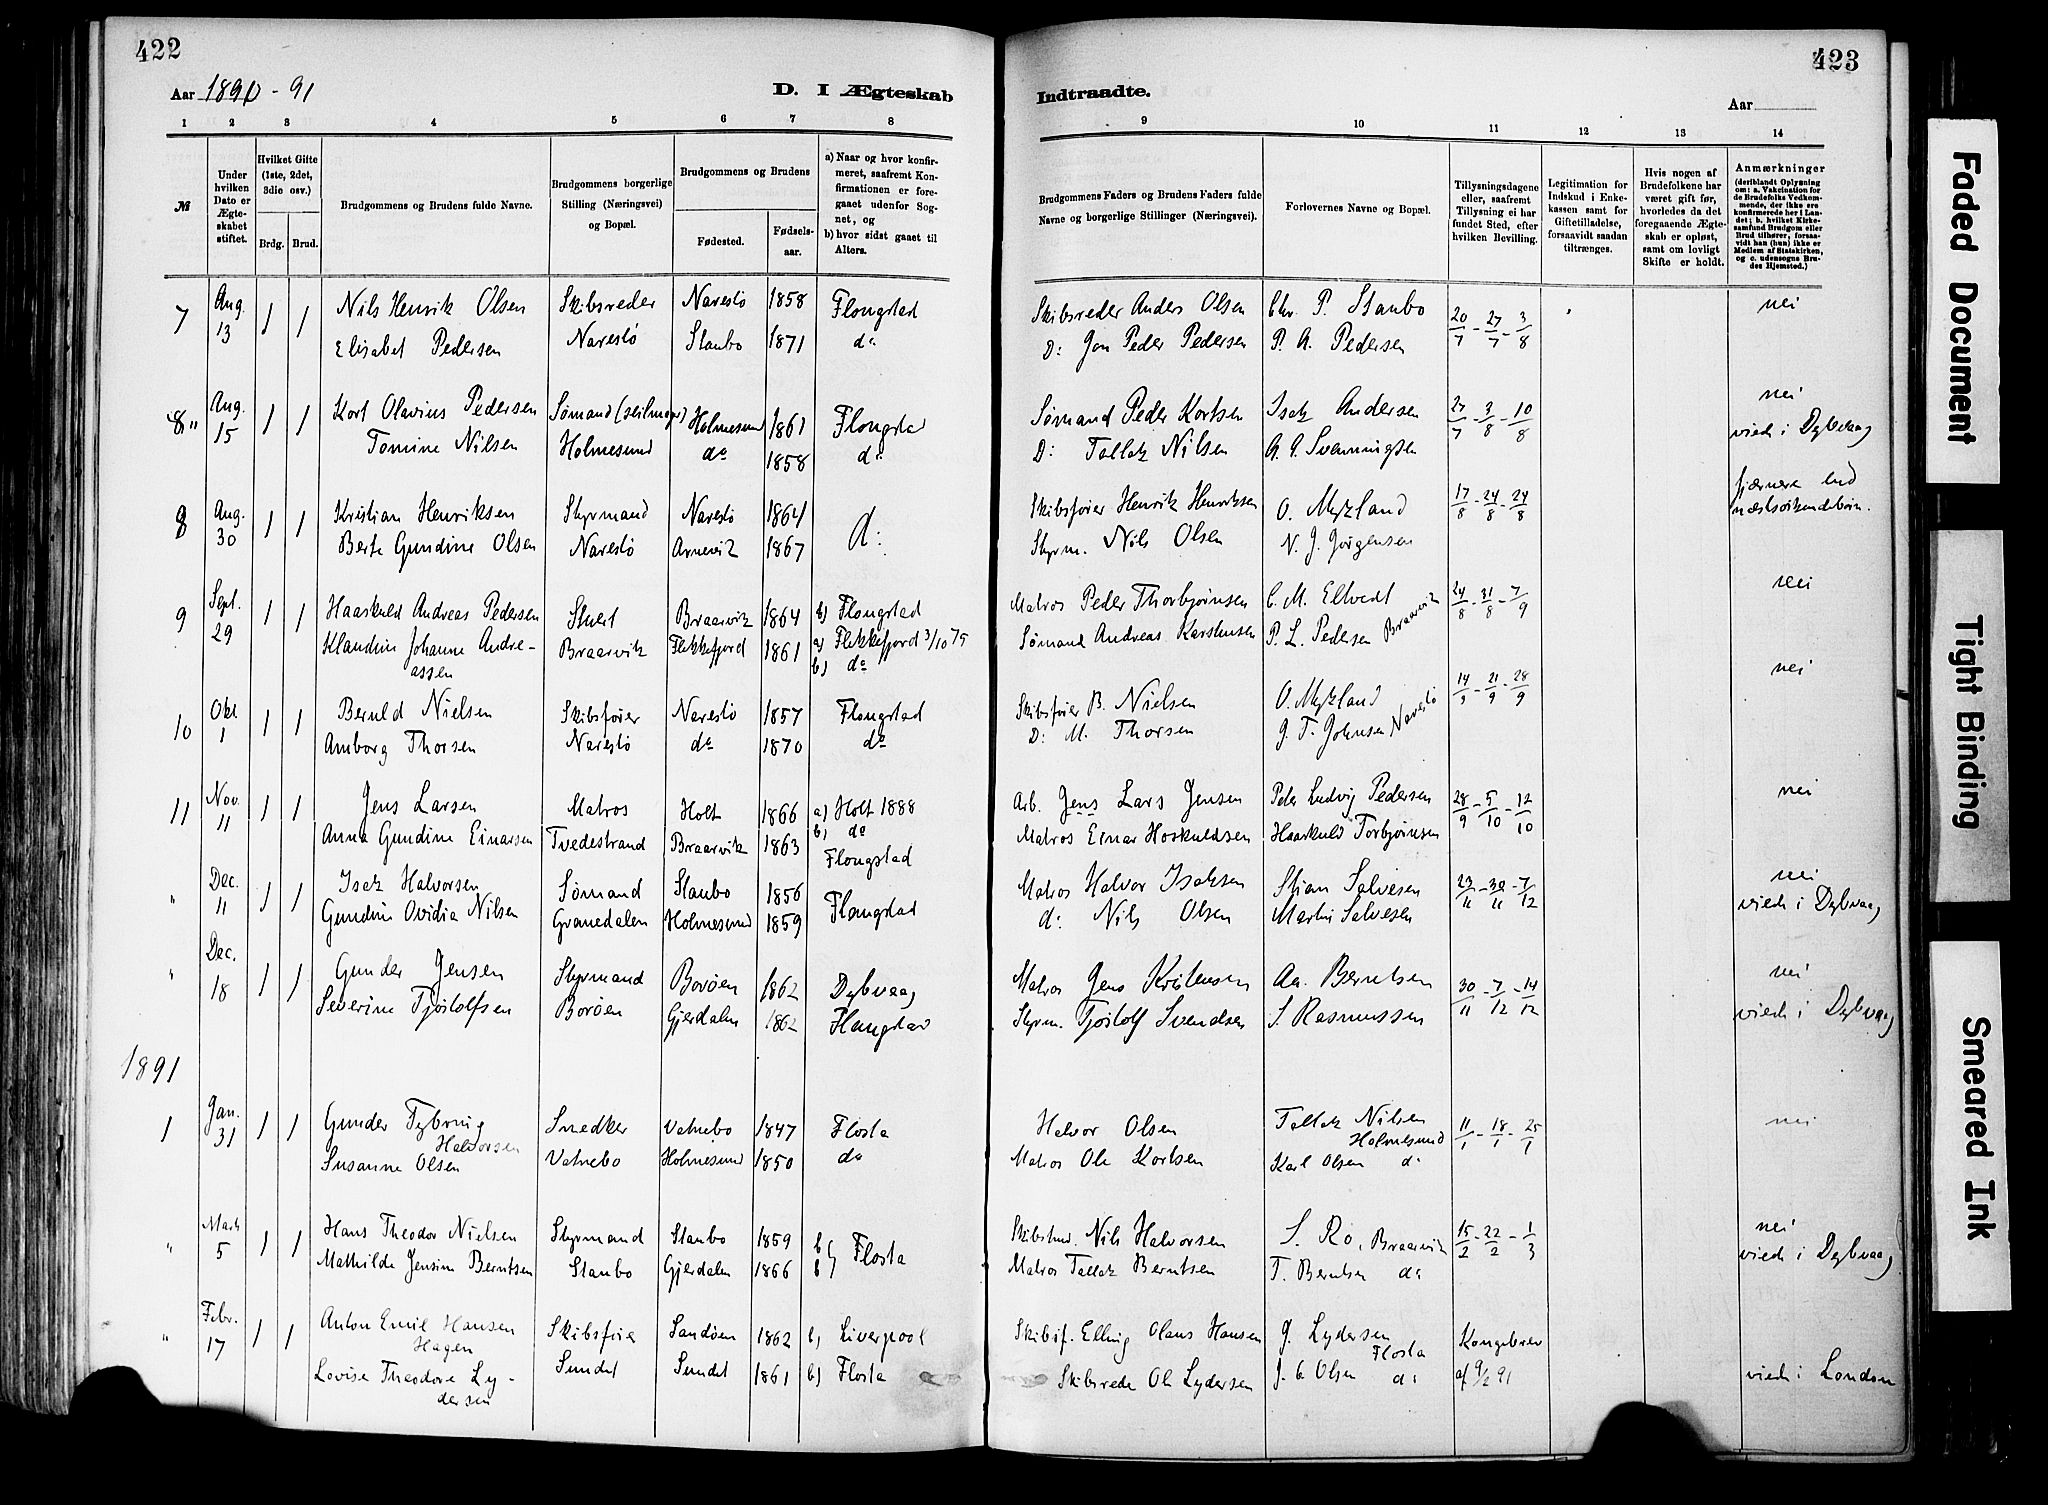 422
Aar 1890 - 91
D. I Ægteskab
1 2 3 4 5 6 7 8
№
Under hvilken Dato er Ægteskabet stiftet.
Hvilket Gifte (1ste, 2det, 3die osv.)
Brdg. Brud.
Brudgommens og Brudens fulde Navne.
Brudgommens borgerlige Stilling (Næringsvei) og Bopæl.
Brudgommens og Brudens
Fødested. Fødselsaar.
a) Naar og hvor konfirmeret, saafremt Konfirmationen er foregaaet udenfor Sognet, og
b) hvor sidst gaaet til Alters.
7 Aug. 13 1 1 Nils Henrik Olsen Skibsreder Narestø 1858 Flangstad
Elisabet Pedersen Narestø Staubo 1871 do
8" Aug. 15 1 1 Kort Olavius Pedersen Sømand Holmesund 1861 Flangstad
Tomine Nilsen Holmesund do 1858 do
8 Aug. 30 1 1 Kristian Henriksen Styrmand Narestø 1864 d:
Berte Gundine Olsen Narestø Arnevik 1867
9 Sept. 29 1 1 Haaskuld Andreas Pedersen Stuert Braarvik 1864 b) Flangstad
Klandine Johanne Andre- Braarvik Flekkefjord 1861 a) Flekkefjord 3/10 75
assen b) do
10 Okt 1 1 1 Bernld Nielsen Skibsfører Narestø 1857 Flangstad
Amborg Thorsen Narestø do 1870 do
11 Nov. 11 1 1 Jens Larsen Matros Holt 1866 a) Holt 1888
b) do
Anne Gundine Einarsen Tvedestrand Braarvik 1863 Flangstad
" Dec. 11 1 1 Isak Halvorsen Sømand Staubo 1856 Flangstad
Gundine Ovidia Nilsen Granedalen Holmesund 1859
" Dec. 18 1 1 Gunder Jensen Styrmand Borøen 1862 Dybvaag
Severine Tjøstolfsen Borøen Gjerdalen 1862 Flangstad
1891
1 Jan. 31 1 1 Gunder Tybring Snedker Vatnebo 1847 Flosta
Halvorsen
Susanne Olsen Vatnebo Holmesund 1850 do
" Marts 5 1 1 Hans Theodor Nielsen Styrmand Staubo 1859 b) Flosta
Mathilde Jensine Berntsen Staubo Gjerdalen 1866 b)
" Febr. 17 1 1 Anton Emil Hansen Skibsfører Sandøen 1862 b) Liverpool
Hagen
Lovise Theodore Ly- Sundet Sundet 1861 b) Flosta
dersen
423
Indtraadte.
Aar
9 10 11 12 13 14
Brudgommens Faders og Brudens Faders fulde Navne og borgerlige Stillinger (Næringsvei).
Forlovernes Navne og Bopæl.
Tillysningsdagene eller, saafremt Tillysning ei har fundet Sted, efter hvilken Bevilling.
Legitimation for Indskud i Enkekassen samt for Giftetilladelse, forsaavidt saadan tiltrænges.
Hvis nogen af Brudefolkene har været gift før, hvorledes da det foregaaende Ægteskab er opløst, samt om lovligt Skifte er holdt.
Anmærkninger (deriblandt Oplysning om: a. Vakcination for de Brudefolks Vedkommende, der ikke ere konfirmerede her i Landet; b. hvilket Kirkesamfund Brudgom eller Brud tilhører, forsaavidt han (hun) ikke er Medlem af Statskirken, og c. udensogns Brudes Hjemsted.)
Skibsreder Anders Olsen Chr. P. Staubo 20/7 - 27/7 - 3/8 nei
D: Jon Peder Pedersen P. A. Pedersen
Sømand Peder Kortsen Isak Andersen 27/7 - 3/8 - 10/8 nei
D: Tallak Nilsen A. G. Svenningsen viede i Dybvaag
Skibsfører Henrik Henriksen O. Mykland 17/8 - 24/8 - 24/8 fjærnere end
Styrm. Nils Olsen N. J. Jørgensen næstsøskendebørn.
Matros Peder Thorbjørnsen C. M. Eltvedt 24/8 - 31/8 - 7/9 nei
Sømand Andreas Karstensen P. L. Pedersen Braarvik
Skibsfører B. Nielsen O. Mykland 14/9 - 21/9 - 28/9 nei
D: M. Thorsen G. T. Johnsen Narestø
Arb. Jens Lars Jensen Peder Ludvig Pedersen 28/9 - 5/10 - 12/10 nei
Matros Einar Hoskuldsen Haaskuld Torbjørnsen
Matros Halvor Isaksen Stian Salvesen 23/11 - 30/11 - 7/12 nei
d: Nils Olsen Martin Salvesen viede i Dybvaag
Matros Jens Kristensen Aa. Berntsen 30/11 - 7/12 - 14/12 nei
Styrm. Tjøstolf Svendsen S. Rasmussen viede i Dybvaag
Halvor Olsen Tallak Nilsen 11/1 - 18/1 - 25/1 nei
Holmesund
Matros Ole Kortsen Karl Olsen d:
Nils Halvorsen S. Ro, Braarvik 15/2 - 22/2 - 1/3 nei
Matros Tallak Berntsen T. Berntsen d: viede i Dybvaag
Skibsf. Elling Olaus Hansen J. Lydersen Kongebrev
Flosta
Skibsrede Ole Lydersen J. C. Olsen d: af 9/2 91 viede i London
Faded Document
Tight Binding
Smeared Ink